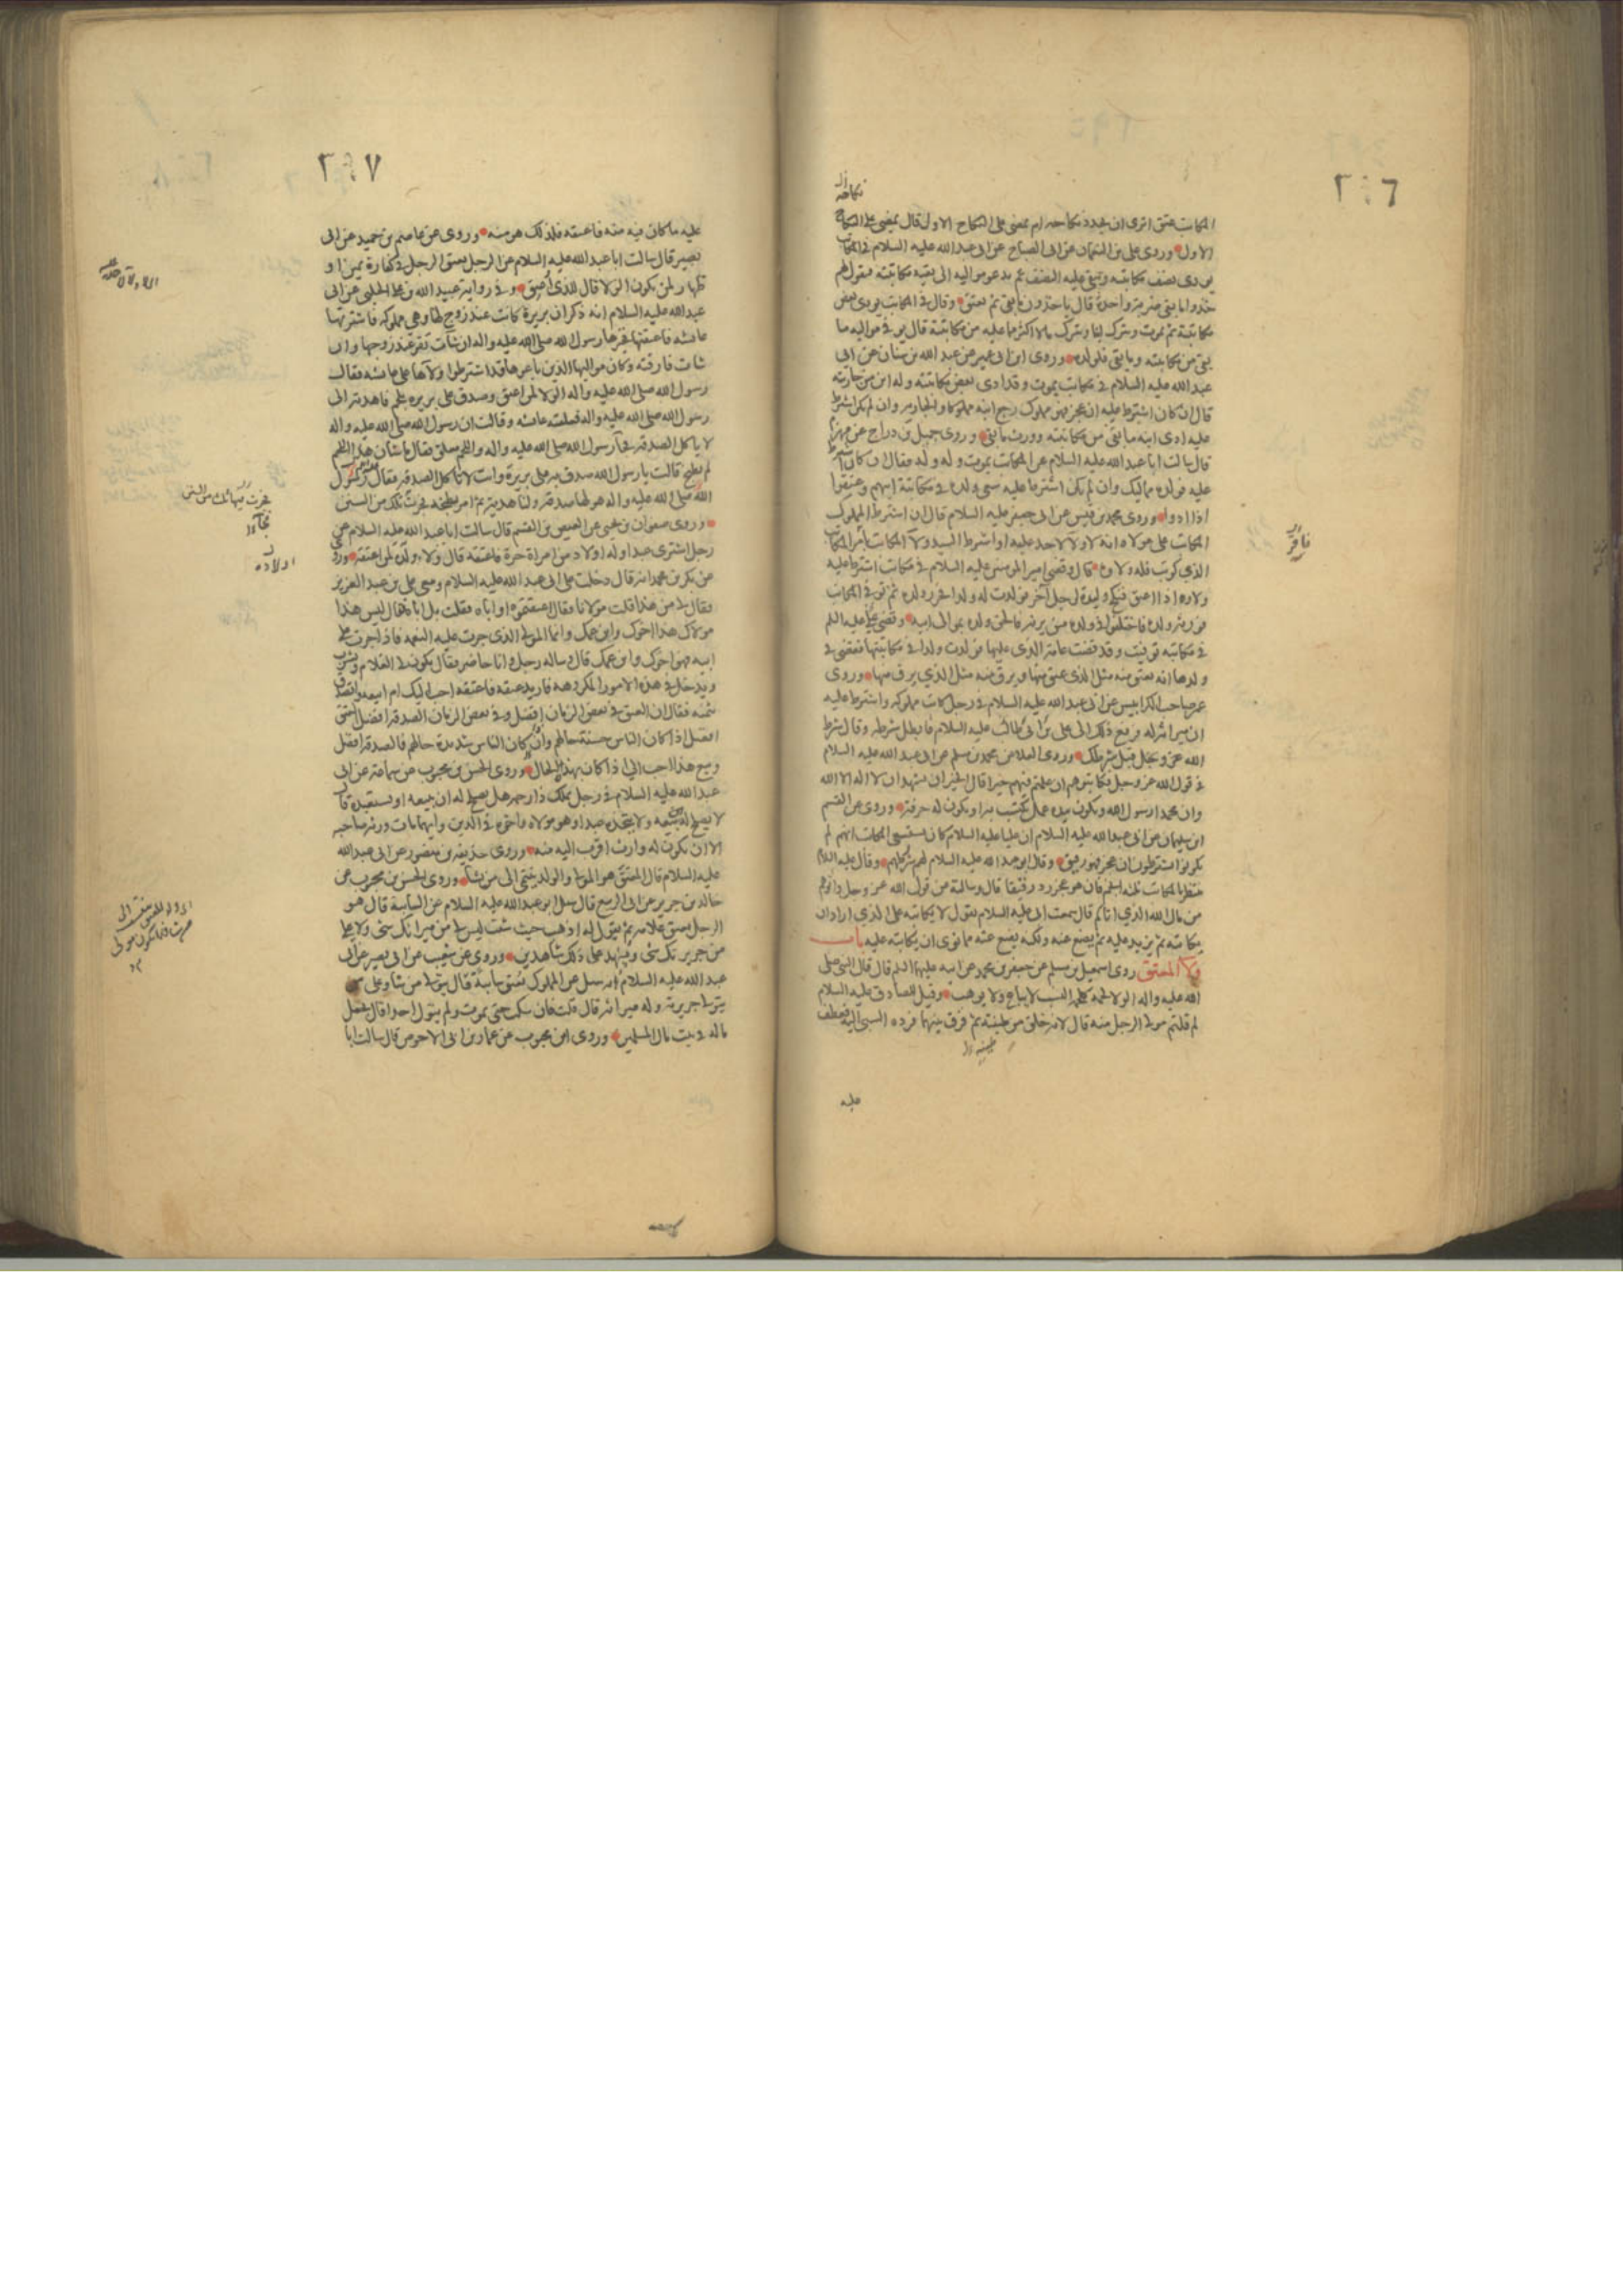 ٢٩٦
نكاحه
المكاتب عتق اترى ان يجدد نكاحه ام يمضى على النكاح الاول قال يمضى على النكاح
الاول وروى على بن النعمان عن ابى الصباح عن ابى عبد الله عليه السلام فى المكاتب
يؤدى نصف مكاتبته ويبقى عليه النصف ثم يدعو مواليه الى بقية مكاتبته فيقول لهم
خذوا ما بقى ضربة واحدة قال ياخذون ما بقى ثم يعتق وقال فى المكاتب يؤدى بعض
مكاتبته ثم يموت ويترك ابنا ويترك مالا اكثر مما عليه من مكاتبته قال يوفى مواليه ما
بقى من مكاتبته وما بقى فلولده وروى ابن ابى عمير عن عبد الله بن سنان عن ابى
عبد الله عليه السلام فى مكاتب يموت وقد ادى بعض مكاتبته وله ابن من جاريته
قال ان كان اشترط عليه ان عجز فهو مملوك رجع ابنه مملوكا والجارية وان لم يكن اشترط
عليه ادى ابنه ما بقى من مكاتبته وورث ما بقى وروى جميل بن دراج عن مهزم
قال سالت ابا عبد الله عليه السلام عن المكاتب يموت وله ولد فقال ان كان اشترط
عليه فولده مماليك وان لم يكن اشترط عليه سعى ولده فى مكاتبة ابيهم وعتقوا
اذا ادوا وروى محمد بن قيس عن ابى جعفر عليه السلام قال ان اشترط المملوك
المكاتب على مولاه انه لا ولاء لاحد عليه او اشترط السيد ولاء المكاتب فاقر المكاتب
الذى كوتب فله ولاؤه قال وقضى امير المؤمنين عليه السلام فى مكاتب اشترط عليه
ولاؤه اذا اعتق فنكح وليدة لرجل آخر فولدت له ولدا فحرر ولده ثم توفى المكاتب
فورثه ولده فاختلفوا فى ولده من يرثه فالحق ولده بموالى ابيه وقضى على عليه السلم
فى مكاتبة توفيت وقد قضت عامة الذى عليها فولدت ولدا فى مكاتبتها فقضى فى
ولدها انه يعتق منه مثل الذى عتق منها ويرق منه مثل الذى يرق منها وروى
عمر صاحب الكرابيس عن ابى عبد الله عليه السلام فى رجل كاتب مملوكه واشترط عليه
ان ميراثه له فرفع ذلك الى على بن ابى طالب عليه السلام فابطل شرطه وقال شرط
الله عز وجل قبل شرطك وروى العلا عن محمد بن مسلم عن ابى عبد الله عليه السلام
فى قول الله عز وجل فكاتبوهم ان علمتم فيهم خيرا قال الخير ان يشهد ان لا اله الا الله
وان محمدا رسول الله ويكون بيده عمل يكتسب به او يكون له حرفة وروى عن القسم
ابن سليمان عن ابى عبد الله عليه السلام ان عليا عليه السلام كان يستسعى المكاتب انهم لم
يكونوا يشترطون ان عجز فهو رقيق وقال ابو عبد الله عليه السلام لهم شروطهم وقال عليه السلام
ينتظر بالمكاتب ثلثة انجم فان هو عجز رد رقيقا قال وسالته عن قول الله عز وجل واتوهم
من مال الله الذى اتاكم قال سمعت ابى عليه السلام يقول لا يكاتبه على الذى اراد ان
يكاتبه ثم يزيد عليه ثم يضع عنه ولكنه يضع عنه مما نوى ان يكاتبه عليه باب
ولاء المعتق روى اسمعيل بن مسلم عن جعفر بن محمد عن ابيه عليهما السلم قال قال النبى صلى
الله عليه واله الولاء لحمة كلحمة النسب لا يباع ولا يوهب وقيل للصادق عليه السلام
لم قلتم مولى الرجل منه قال لانه خلق من طينته ثم فرق بينهما فرده السبى اليه فعطف
طينته
عليه
فاقر
٢٩٧
عليه ما كان فيه منه فاعتقه فلذلك هو منه وروى عن عاصم بن حميد عن ابى
بصير قال سالت ابا عبد الله عليه السلام عن الرجل يعتق الرجل فى كفارة يمين او
ظهار لمن يكون الولا قال للذى اعتق وفى رواية عبيد الله بن على الحلبى عن ابى
عبد الله عليه السلام انه ذكر ان بريرة كانت عند زوج لها وهى مملوكة فاشترتها
عايشه فاعتقتها فخيرها رسول الله صلى الله عليه واله ان شات تقر عند زوجها وان
شات فارقته وكان مواليها الذين باعوها قد اشترطوا ولاءها على عايشه فقال
رسول الله صلى الله عليه واله الولا لمن اعتق وصدق على بريره بلحم فاهدته الى
رسول الله صلى الله عليه واله فعلقته عايشه وقالت ان رسول الله صلى الله عليه واله
لا ياكل الصدقة فجاء رسول الله صلى الله عليه واله واللحم معلق فقال ما شان هذا اللحم
لم يطبخ قالت يا رسول الله صدق به على بريرة وانت لا تاكل الصدقة فقال رسول
الله صلى الله عليه واله هو لها صدقة ولنا هدية ثم امر بطبخه فجرت تلك من السنن
وروى صفوان بن يحيى عن العيص بن القسم قال سالت ابا عبد الله عليه السلام عن
رجل اشترى عبدا وله اولاد من امراة حرة فاعتقه قال ولاء ولده لمن اعتقه وروى
عن بكر بن محمد انه قال دخلت على ابى عبد الله عليه السلام ومعى على بن عبد العزيز
فقال لى من هذا قلت مولانا فقال اعتقتموه او اباه فقلت بل اباه فقال ليس هذا
مولاك هذا اخوك وابن عمك وانما المولى الذى جرت عليه النعمة فاذا جرت على
ابيه فهو اخوك وابن عمك قال وساله رجل وانا حاضر فقال يكون لى الغلام ويشرب
ويدخل فى هذه الامور المكروهة فاريد عتقه فاعتقه احب اليك ام ابيعه واتصدق
بثمنه فقال ان العتق فى بعض الزمان افضل وفى بعض الزمان الصدقة افضل العتق
افضل اذا كان الناس حسنة حالهم واذا كان الناس شديدة حالهم فالصدقة افضل
وبيع هذا احب الى اذا كان بهذا الحال وروى الحسن بن محبوب عن سماعة عن ابى
عبد الله عليه السلام فى رجل يملك ذا رحمه هل يصلح له ان يبيعه او يستعبده قال
لا يصلح له بيعه ولا يتخذه عبدا وهو مولاه واخوه فى الدين وايهما مات ورثه صاحبه
الا ان يكون له وارث اقرب اليه منه وروى حذيفة بن منصور عن ابى عبد الله
عليه السلام قال المعتق هو المولى والولد ينتمى الى من شاء وروى الحسن بن محبوب عن
خالد بن جرير عن ابى الربيع قال سئل ابو عبد الله عليه السلام عن السائبة قال هو
الرجل يعتق غلامه ثم يقول له اذهب حيث شئت ليس لى من ميراثك شى ولا على
من جريرتك شى ويشهد على ذلك شاهدين وروى عن شعيب عن ابى بصير عن ابى
عبد الله عليه السلام انه سئل عن المملوك يعتق سائبة قال يتولى من شاء وعلى من
يتولى جريرته وله ميراثه قال قلت فان سكت حتى يموت ولم يتول احدا قال يجعل
ماله فى بيت مال المسلمين وروى ابن محبوب عن عمار بن ابى الاحوص قال سالت ابا
اولاده